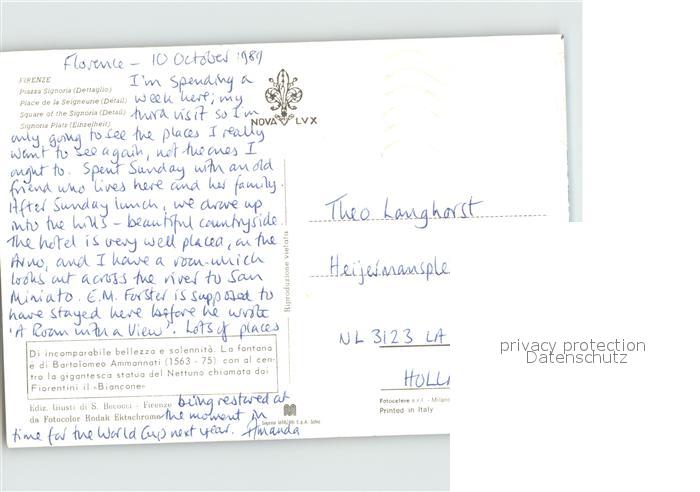 Florence – 10 October 1989
FIRENZE
Piazza Signoria (Dettaglio)
Place de la Seigneurie (Détail)
Square of the Signoria (Detail)
Signoria Platz (Einzelheit)
I'm spending a
week here; my
third visit so I'm
only going to see the places I really
want to see again, not the ones I
ought to. Spent Sunday with an old
friend who lives here and her family.
After Sunday lunch, we drove up
into the hills – beautiful countryside.
The hotel is very well placed, on the
Arno, and I have a room which
looks out across the river to San
Miniato. E.M. Forster is supposed to
have stayed here before he wrote
'A Room with a View'. Lots of places
being restored at
the moment in
time for the World Cup next year. Amanda
Di incomparabile bellezza e solennità. La fontana
e di Bartolomeo Ammannati (1563 - 75) con al cen-
tro la gigantesca statua del Nettuno chiamata dai
Fiorentini il «Biancone»
Ediz. Giusti di S. Becocci - Firenze
da Fotocolor Kodak Ektachrome
NOVA LVX
Riproduzione vietata
Theo Langhorst
Heijermansple
NL 3123 LA
HOLL
Fotocelere s.r.l. - Milano
Printed in Italy
privacy protection
Datenschutz